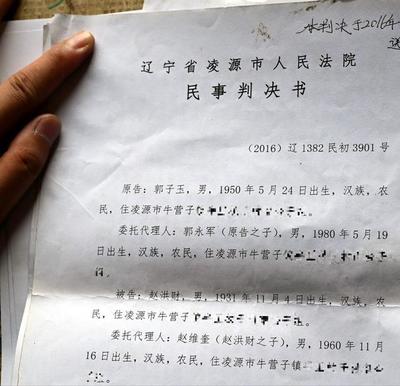 本判决于2016年
送
辽宁省凌源市人民法院
民事判决书
（2016）辽 1382 民初 3901 号
原告：郭子玉，男，1950 年 5 月 24 日出生，汉族，农
民，住凌源市牛营子
委托代理人：郭永军（原告之子），男，1980 年 5 月 19
日出生，汉族，农民，住凌源市牛营子
被告：赵洪财，男，1931 年 11 月 4 日出生，汉族，农
民，住凌源市牛营子
委托代理人：赵维奎（赵洪财之子），男，1960 年 11
月 16 日出生，汉族，农民，住凌源市牛营子镇